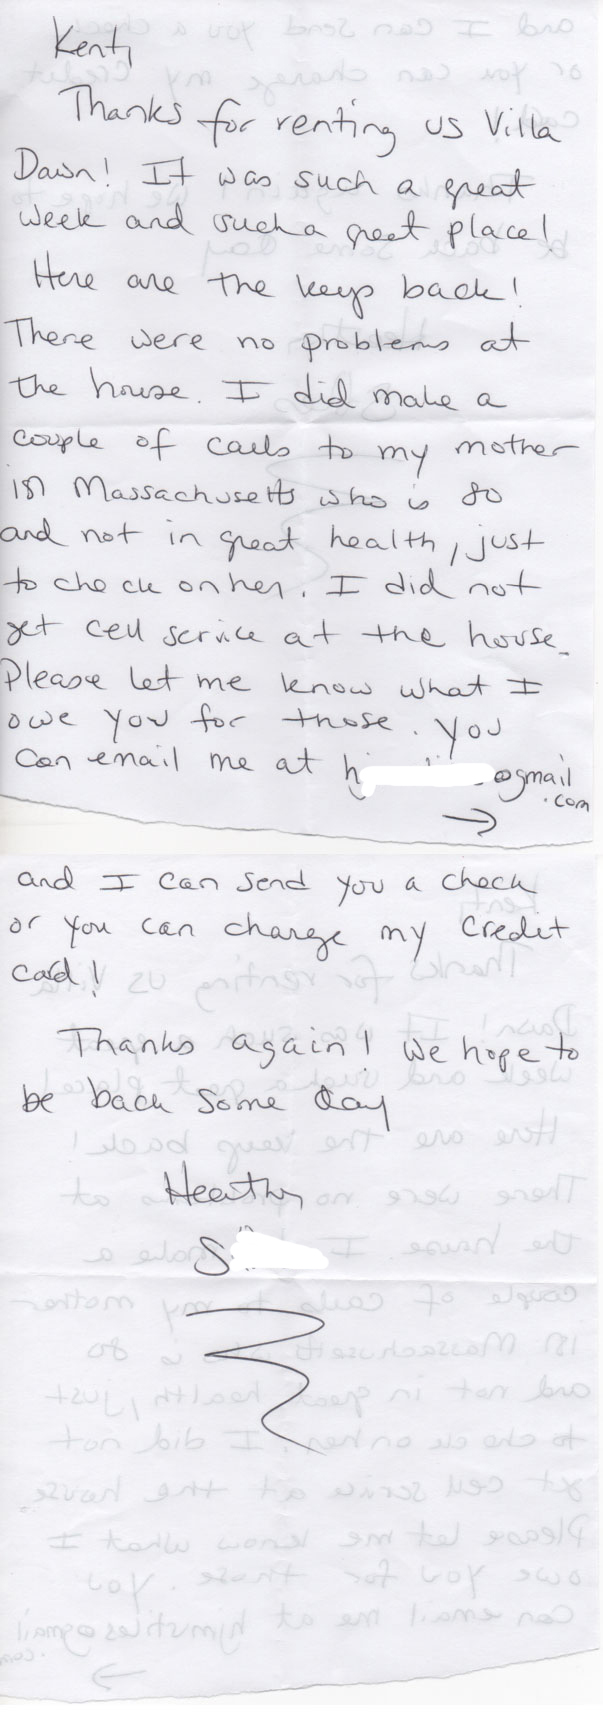 Kent,
Thanks for renting us Villa
Dawn! It was such a great
week and such a great place!
Here are the keys back!
There were no problems at
the house. I did make a
couple of calls to my mother
in Massachusetts who is 80
and not in great health, just
to check on her. I did not
get cell service at the house.
Please let me know what I
owe you for those. You
can email me at h @gmail
.com
→
and I can send you a check
or you can charge my credit
card!
Thanks again! We hope to
be back some day
Heather
S